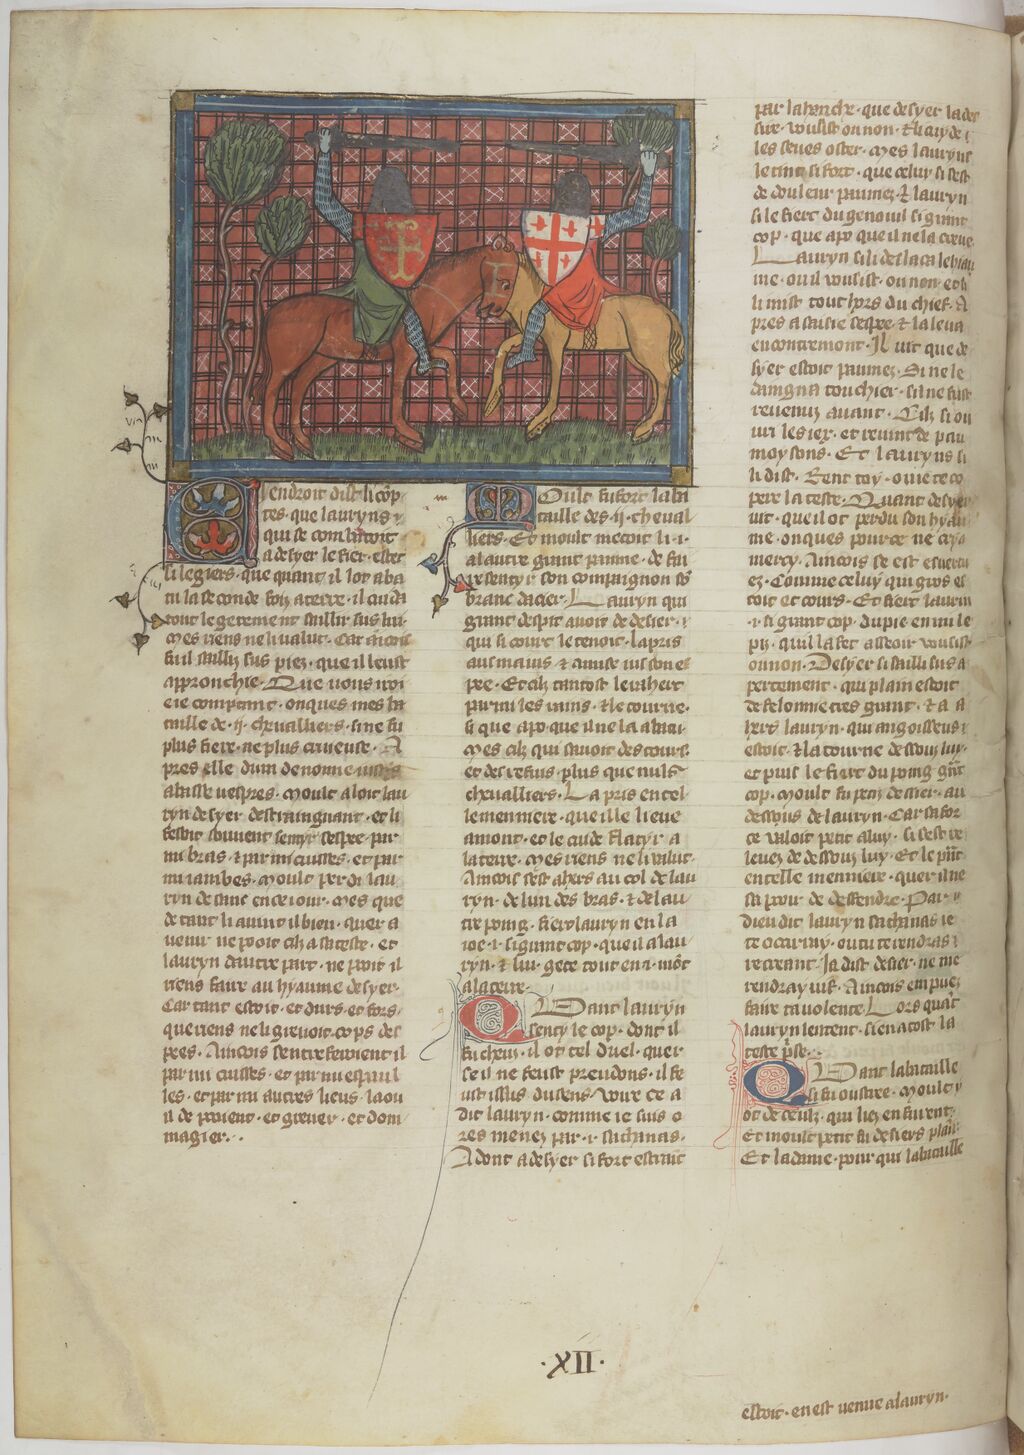 endroit dist li cōp
tes. que lauryns
qui se combatoit
a desyer le fier. estet
si legiers. que quant il lot aba
tu la seconde foiz a terre. il cuida
tout legerement saillir sus lui.
Mes riens ne li valut. Car
fu il sailliz sus piez. que il leust
approuchie. Que vous
eie comptant. onques mes ba
taille de .ij. chevalliers. si ne fu
plus fiere. ne plus crueuse. A
pres elle dura de nonne
abasse vespres. Moult aloit lau
ryn desyer destraingnant. et li
fesoit souvent sentyr sespee. par
mi bras. & parmi cuisses. et par
mi iambes. Moult perdi lau
ryn de sanc ence iour. Mes que
de tant li avint il bien. quer a
venir ne poit cilz a sa teste. et
lauryn dautre part. ne poit il
riens faire au hyaume desyer.
Car tant estoit. et durs. et fors.
que riens ne li grevoit. cops des
pees. Aincois sentreferoient il
parmi cuisses. et parmi espaul
les. et parmi autres lieus. la ou
il se pouent. et grever. et dom
magier.
Oult fu fort la ba
taille des .ij. cheval
liers. Et moult metoit li .i.
a lautre grant paine. de fai
re sentyr son compaignon sō
branc dacier. Lauryn qui
grant despit avoit de desier.
qui si court le tenoit. la pris
aus mains & a mise ius son es
pee. Et cilz tantost le rahert
parmi les rains. & le tourne.
si que apo que il ne la abatu.
Mes cilz qui savoit des tours.
et des refus. plus que nulz
chevalliers. La pris en tel
le menniere. que ille lieve
amont. et le cuide flatyr a
la terre. Mes riens ne li valut.
Aincois sest ahers au col de lau
ryn. de lun des bras. & de lau
tre poing. fiert lauryn en la
ioe .i. si grant cop. que il a lau
ryn. & lui. gete tout en .i. mōt
a la terre.
Quant lauryn
senty le cop. dont il
fu cheuz. il ot tel duel. quer
se il ne feust preudons. il fe
ust issus du sens. Voire ce a
dit lauryn. comme ie suis o
res menez par .i. sathanas.
Adont a desyer si fort estraint
par la henche. que desyer la des
sire. vousist ou non. & cuyde
les seues oster. Mes lauryns
le tint si fort. que celuy si sest
de douleur paumez. & lauryn
si le fiert du genouil si grant
cop. que apo que il ne la creue.
Lauryn si li deslaca le hiau
me. ou il vousist. ou non. et li
li mist tout hors du chief. A
pres a saisie sespee. & la leva
encontremont. Il vit que de
syer estoit paumez. Si ne le
daingna touchier. si ne fust
revenuz avant. Cilz si ou
vri les iex. et revint de pau
moysons. Et lauryns si
li dist. Rent toy. ou ie te co
pere la teste. Quant desyer
vit. que il ot perdu son hyau
me. onques pour ce ne cria
mercy. Aincois se est esvertu
ez. Comme celuy qui gros es
toit et cours. Et fiert lauryn
.i. si grant cop. du pie en mi le
piz. qui la fet asseoir vousist
ou non. Desyer si sailli sus a
pertement. qui plain estoit
de felonnie tres grant. & a a
hers lauryn. qui angoisseus
estoit. & la tourne dessouz luy.
et puis le fiert du poing grāt
cop. Moult fu prez desier. au
dessus de lauryn. Car sa for
ce valoit petit a luy. si sest re
levez de dessouz luy. Et le prīt
en celle menniere. quer il ne
sa pooir de deffendre. Par
dieu dit lauryn sathanas ie
te occirray. ou tu te rendras
recreant. Ja dist desier. ne me
rendray vif. Aincois em puez
faire ta volente. Lors quāt
lauryn lentent. si en a tost la
teste prise.
Quant la bataille
si fu oustree. Moult y
ot de ceulz. qui liez en furent.
Et moult petit fu desiers plaīs.
Et la dame. pour qui la bataille
.XII.
estoit. en est venue a lauryn.